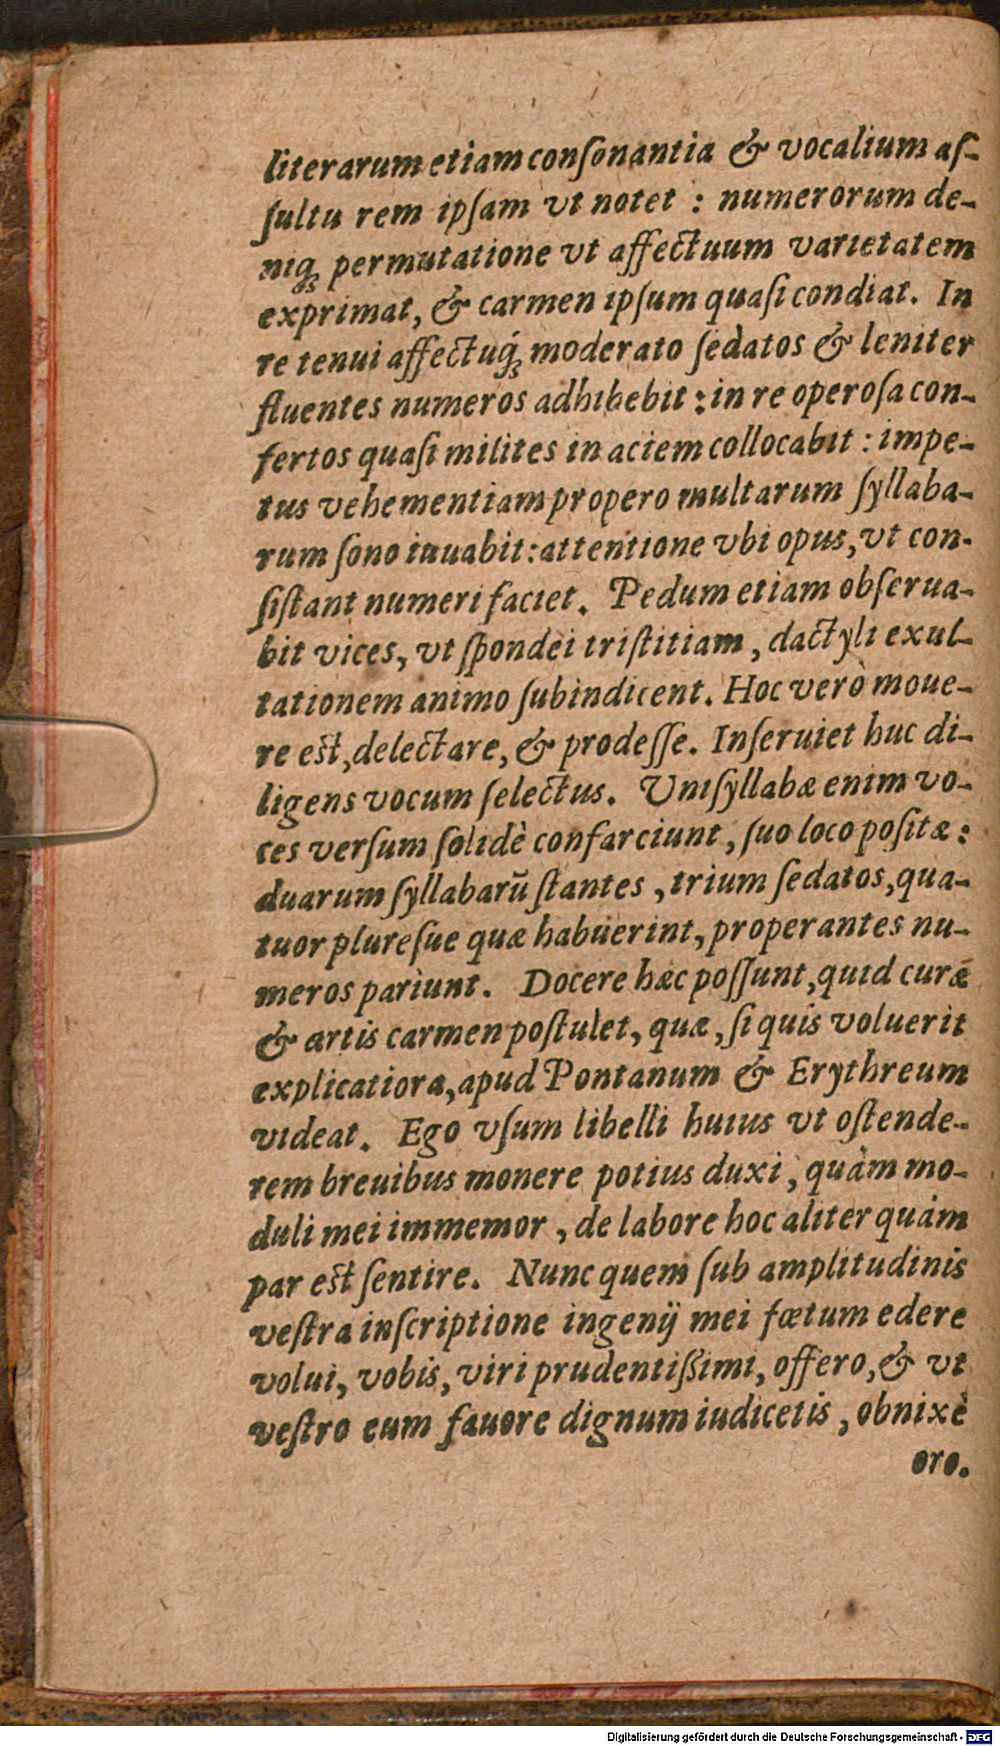 literarum etiam conſonantia & vocalium aſ-
ſultu rem ipſam vt notet : numerorum de-
niq́ꝫ permutatione vt affectuum varietatem
exprimat, & carmen ipſum quaſi condiat. In
re tenui affectuq́ꝫ moderato ſedatos & leniter
fluentes numeros adhibebit : in re operoſa con-
fertos quaſi milites in aciem collocabit : impe-
tus vehementiam propero multarum ſyllaba-
rum ſono iuuabit : attentione vbi opus, vt con-
ſiſtant numeri faciet. Pedum etiam obſerua-
bit vices, vt ſpondei triſtitiam, dactyli exul-
tationem animo ſubindicent. Hoc verò moue-
re eſt, delectare, & prodeſſe. Inſeruiet huc di-
ligens vocum ſelectus. Uniſyllabæ enim vo-
ces verſum ſolidè confarciunt, ſuo loco poſitæ :
duarum ſyllabarū ſtantes, trium ſedatos, qua-
tuor plureſue quæ habuerint, properantes nu-
meros pariunt. Docere hæc poſſunt, quid curæ
& artis carmen poſtulet, quæ, ſi quis voluerit
explicatiora, apud Pontanum & Erythreum
videat. Ego vſum libelli huius vt oſtende-
rem breuibus monere potius duxi, quàm mo-
duli mei immemor, de labore hoc aliter quàm
par eſt ſentire. Nunc quem ſub amplitudinis
veſtra inſcriptione ingenij mei fœtum edere
volui, vobis, viri prudentißimi, offero, & vt
veſtro eum fauore dignum iudicetis, obnixè
oro.
Digitalisierung gefördert durch die Deutsche Forschungsgemeinschaft - DFG